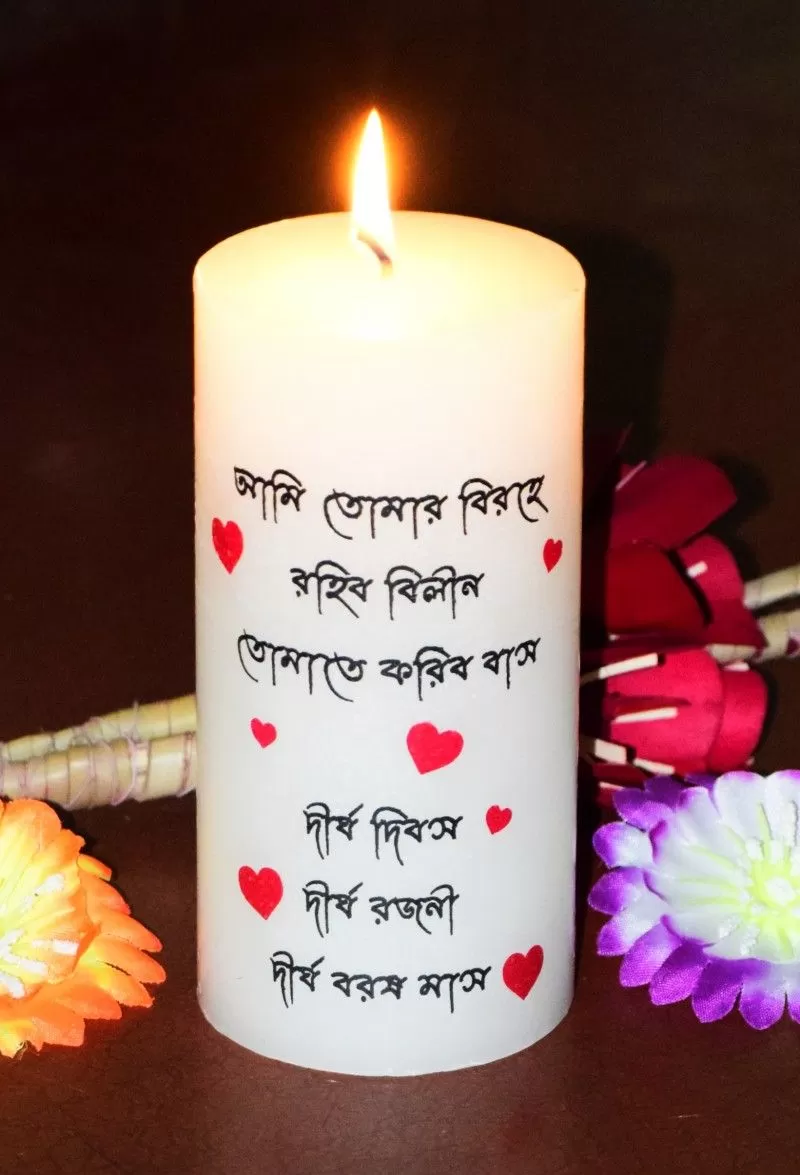 আমি তোমার বিরহে
রহিব বিলীন
তোমাতে করিব বাস
দীর্ঘ দিবস
দীর্ঘ রজনী
দীর্ঘ বরষ মাস